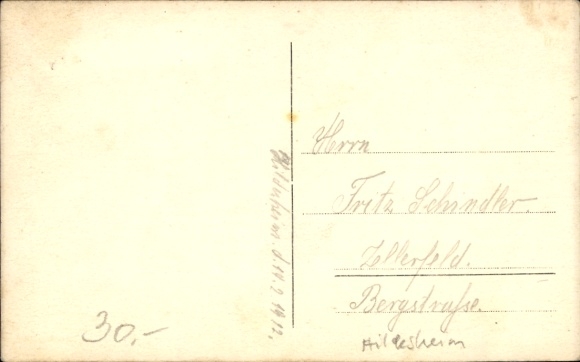 Herrn
Fritz Schindler.
Zellerfeld.
Bergstraße.
Hildesheim
Hildesheim. d. 11. 2. 1912.
30.-